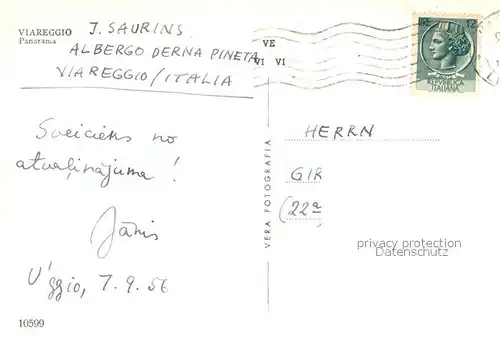 VIAREGGIO
Panorama
J. SAURINS
ALBERGO DERNA PINETA
VIAREGGIO/ITALIA
VE
VI VI
12
REPVBBLICA
ITALIANA
Sveiciens no
atvaļinājuma!
Jānis
V'ggio, 7.9.56
VERA FOTOGRAFIA
HERRN
GIR
(22a
privacy protection
Datenschutz
10599